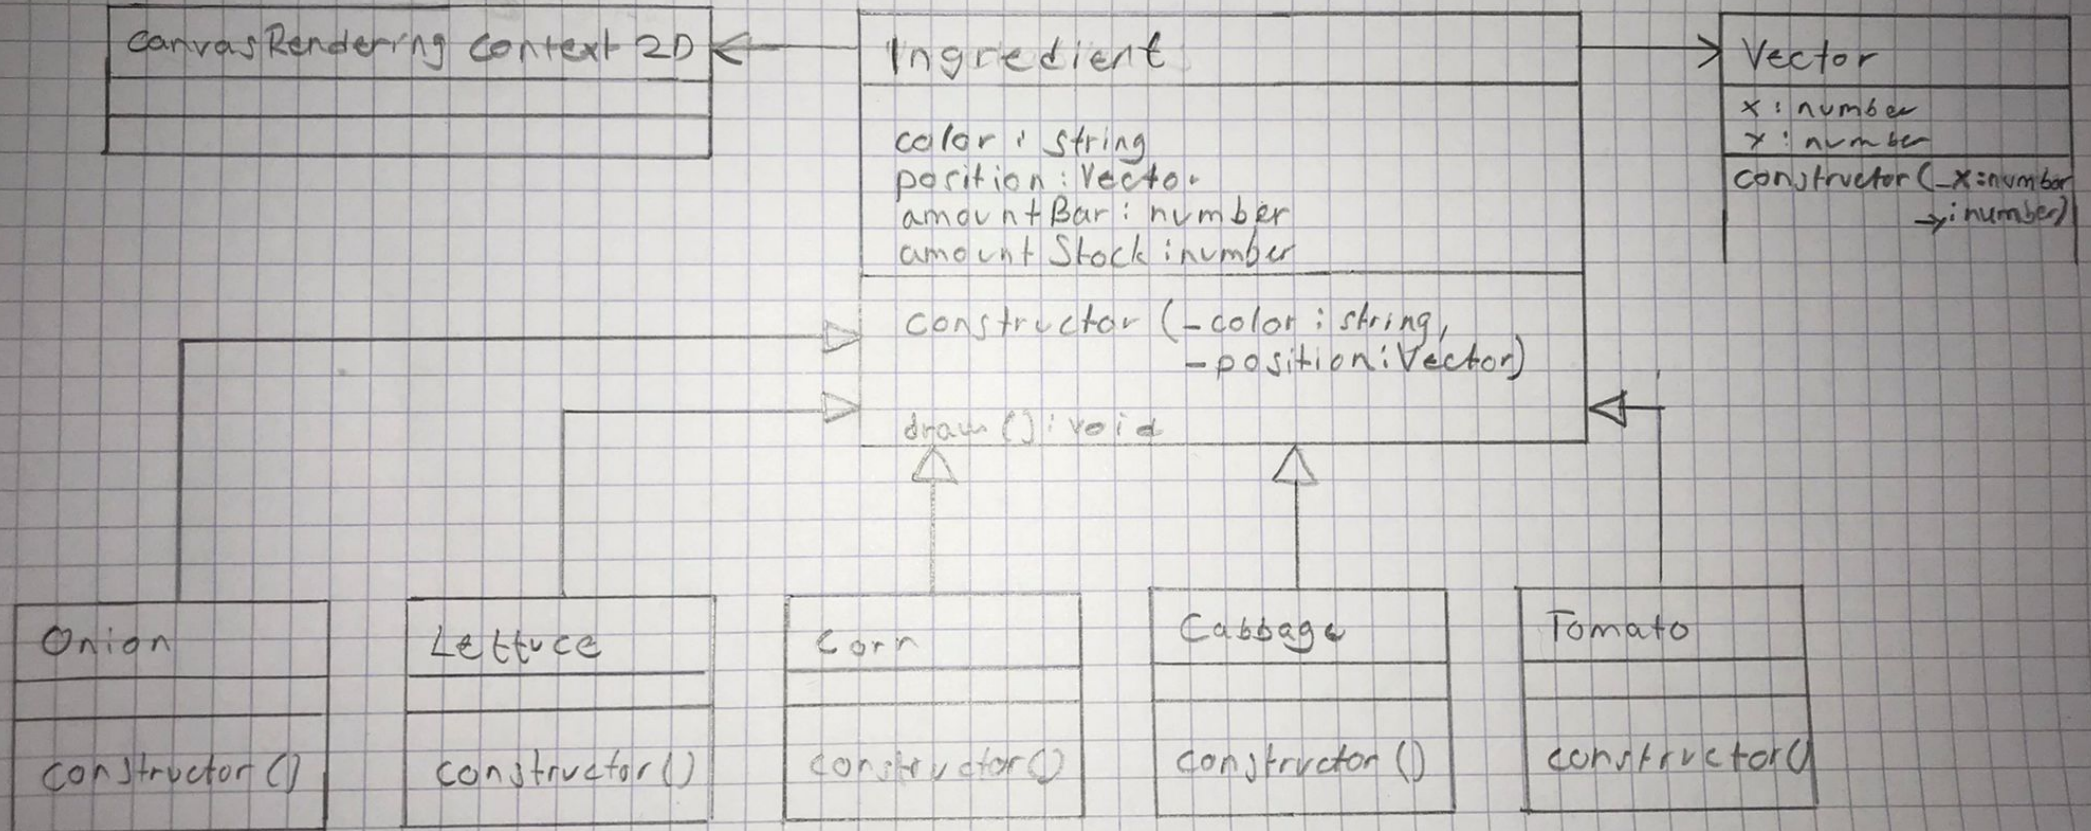 canvasRendering Context 2D
Ingredient
color : string
position : Vector
amountBar : number
amount Stock : number
constructor (_color : string,
_position : Vector)
draw () : void
Vector
x : number
y : number
constructor (_x : number
_y : number)
Onion
constructor ()
Lettuce
constructor ()
Corn
constructor ()
Cabbage
constructor ()
Tomato
constructor ()